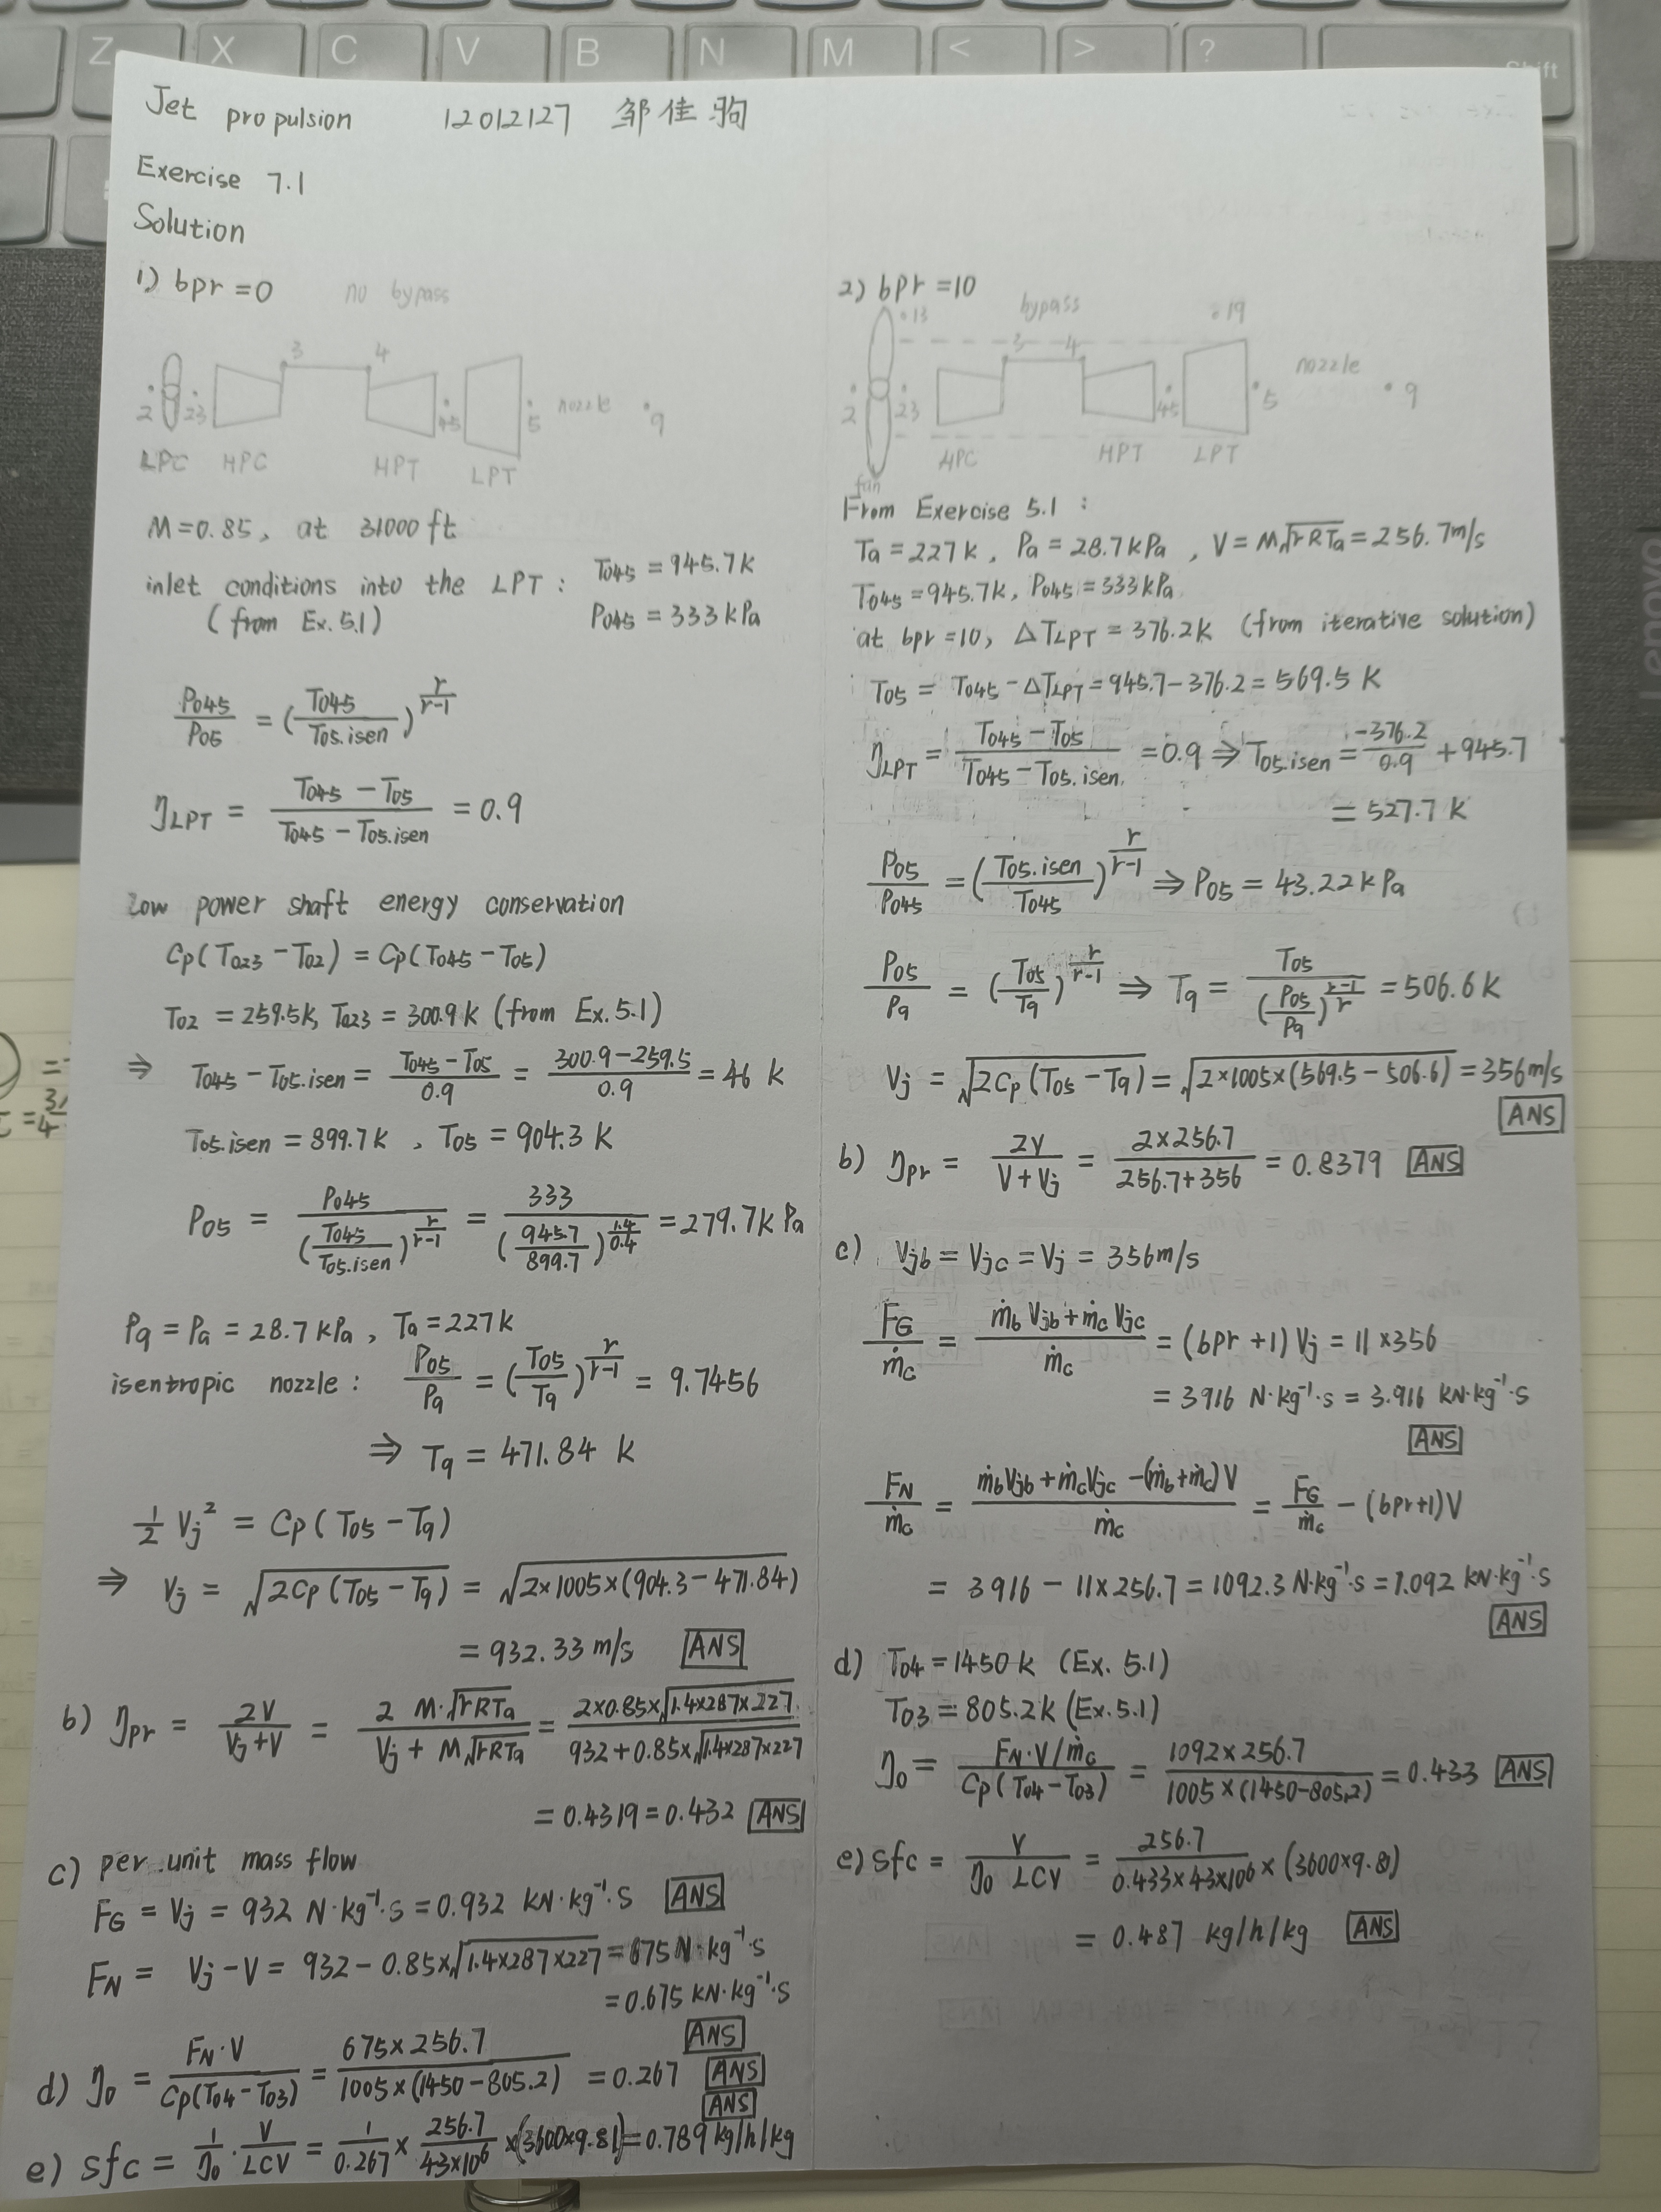 Z X C V B N M < > ? Shift
Lenovo
Jet propulsion 12012127 邹佳驹
Exercise 7.1
Solution
1) bpr = 0 no bypass
3 4
2 23 45 5 nozzle 9
LPC HPC HPT LPT
M = 0.85, at 31000 ft
inlet conditions into the LPT : T045 = 945.7 K
(from Ex. 5.1) P045 = 333 kPa
P045/P05 = (T045/T05.isen)^(r/(r-1))
ηLPT = (T045 - T05)/(T045 - T05.isen) = 0.9
Low power shaft energy conservation
Cp(T023 - T02) = Cp(T045 - T05)
T02 = 259.5K, T023 = 300.9 K (from Ex. 5.1)
⇒ T045 - T05.isen = (T045 - T05)/0.9 = (300.9 - 259.5)/0.9 = 46 K
T05.isen = 899.7 K , T05 = 904.3 K
P05 = P045/(T045/T05.isen)^(r/(r-1)) = 333/(945.7/899.7)^(1.4/0.4) = 279.7 kPa
P9 = Pa = 28.7 kPa, Ta = 227 K
isentropic nozzle : P05/P9 = (T05/T9)^(r/(r-1)) = 9.7456
⇒ T9 = 471.84 K
1/2 Vj² = Cp(T05 - T9)
⇒ Vj = √(2Cp(T05 - T9)) = √(2×1005×(904.3 - 471.84))
= 932.33 m/s ANS
b) ηpr = 2V/(Vj + V) = 2 M·√(rRTa)/(Vj + M√(rRTa)) = 2×0.85×√(1.4×287×227)/(932 + 0.85×√(1.4×287×227))
= 0.4319 = 0.432 ANS
c) per unit mass flow
FG = Vj = 932 N·kg⁻¹·s = 0.932 kN·kg⁻¹·s ANS
FN = Vj - V = 932 - 0.85×√(1.4×287×227) = 675 N·kg⁻¹·s
= 0.675 kN·kg⁻¹·s
ANS
d) η0 = FN·V/(Cp(T04 - T03)) = 675×256.7/(1005×(1450 - 805.2)) = 0.267 ANS
ANS
e) sfc = 1/η0 · V/LCV = 1/0.267 × 256.7/(43×10⁶) × (3600×9.81) = 0.789 kg/h/kg
2) bpr = 10
13 bypass 19
3 4 nozzle
2 23 45 5 9
HPC HPT LPT
fan
From Exercise 5.1 :
Ta = 227 K, Pa = 28.7 kPa , V = M√(rRTa) = 256.7 m/s
T045 = 945.7K, P045 = 333 kPa
at bpr = 10, ΔTLPT = 376.2K (from iterative solution)
T05 = T045 - ΔTLPT = 945.7 - 376.2 = 569.5 K
ηLPT = (T045 - T05)/(T045 - T05.isen) = 0.9 ⇒ T05.isen = -376.2/0.9 + 945.7
= 527.7 K
P05/P045 = (T05.isen/T045)^(r/(r-1)) ⇒ P05 = 43.22 kPa
P05/P9 = (T05/T9)^(r/(r-1)) ⇒ T9 = T05/(P05/P9)^((r-1)/r) = 506.6 K
Vj = √(2Cp(T05 - T9)) = √(2×1005×(569.5 - 506.6)) = 356 m/s
ANS
b) ηpr = 2V/(V + Vj) = 2×256.7/(256.7 + 356) = 0.8379 ANS
c) Vjb = Vjc = Vj = 356 m/s
FG/ṁc = (ṁb Vjb + ṁc Vjc)/ṁc = (bpr + 1) Vj = 11 × 356
= 3916 N·kg⁻¹·s = 3.916 kN·kg⁻¹·s
ANS
FN/ṁc = (ṁbVjb + ṁcVjc - (ṁb + ṁc)V)/ṁc = FG/ṁc - (bpr+1)V
= 3916 - 11×256.7 = 1092.3 N·kg⁻¹·s = 1.092 kN·kg⁻¹·s
ANS
d) T04 = 1450 K (Ex. 5.1)
T03 = 805.2K (Ex. 5.1)
η0 = (FN·V/ṁc)/(Cp(T04 - T03)) = 1092×256.7/(1005×(1450 - 805.2)) = 0.433 ANS
e) sfc = V/(η0 LCV) = 256.7/(0.433×43×10⁶) × (3600×9.81)
= 0.487 kg/h/kg ANS